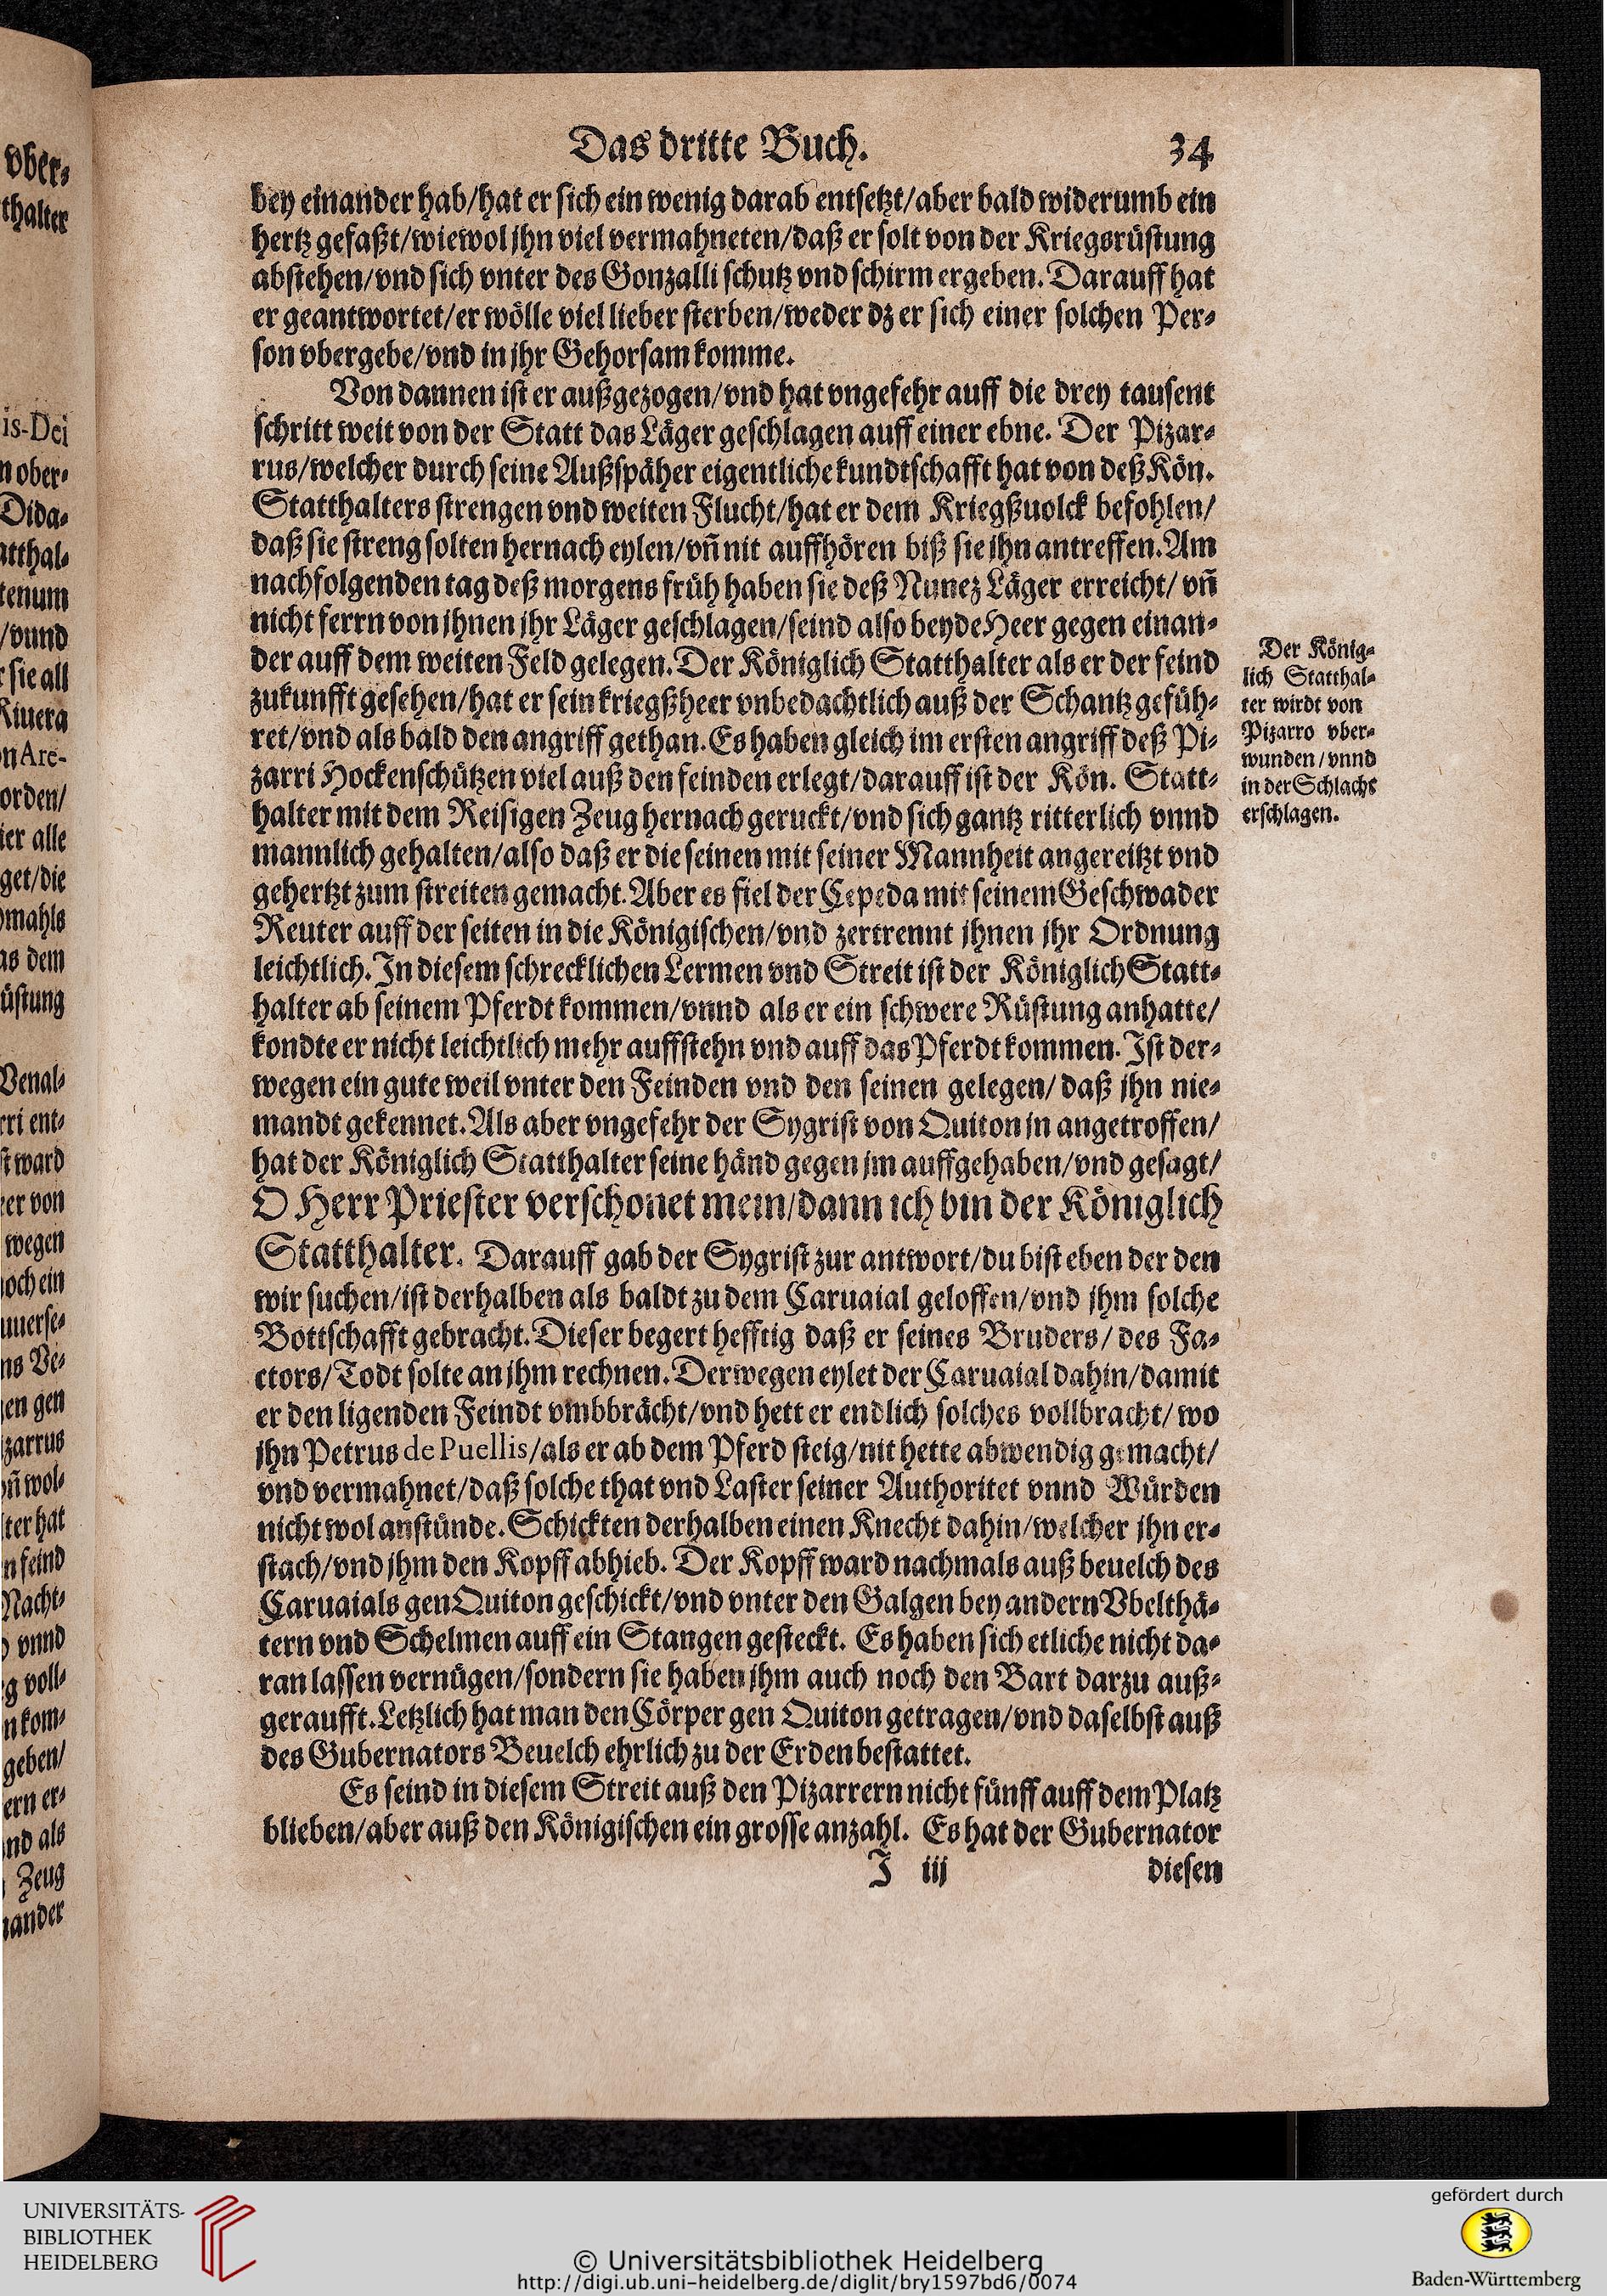 Das dritte Buch. 34
bey einander hab/hat er sich ein wenig darab entsetzt/aber bald widerumb ein
hertz gefaßt/wiewol jhn viel vermahneten/daß er solt von der Kriegsrüstung
abstehen/vnd sich vnter des Gonzalli schutz vnd schirm ergeben. Darauff hat
er geantwortet/er wölle viel lieber sterben/weder dz er sich einer solchen Per-
son vbergebe/vnd in jhr Gehorsam komme.
Von dannen ist er außgezogen/vnd hat vngefehr auff die drey tausent
schritt weit von der Statt das Läger geschlagen auff einer ebne. Der Pizar-
rus/welcher durch seine Außspäher eigentliche kundtschafft hat von deß Kön.
Statthalters strengen vnd weiten Flucht/hat er dem Kriegßuolck befohlen/
daß sie streng solten hernach eylen/vñ nit auffhören biß sie jhn antreffen. Am
nachfolgenden tag deß morgens früh haben sie deß Nunez Läger erreicht/ vñ
nicht ferrn von jhnen jhr Läger geschlagen/seind also beyde Heer gegen einan-
der auff dem weiten Feld gelegen. Der Königlich Statthalter als er der feind
zukunfft gesehen/hat er sein kriegßheer vnbedachtlich auß der Schantz gefüh-
ret/vnd als bald den angriff gethan. Es haben gleich im ersten angriff deß Pi-
zarri Hockenschützen viel auß den feinden erlegt/darauff ist der Kön. Statt-
halter mit dem Reisigen Zeug hernach geruckt/vnd sich gantz ritterlich vnnd
mannlich gehalten/also daß er die seinen mit seiner Mannheit angereitzt vnd
gehertzt zum streiten gemacht. Aber es fiel der Cepeda mit seinem Geschwader
Reuter auff der seiten in die Königischen/vnd zertrennt jhnen jhr Ordnung
leichtlich. In diesem schrecklichen Lermen vnd Streit ist der Königlich Statt-
halter ab seinem Pferdt kommen/vnnd als er ein schwere Rüstung anhatte/
kondte er nicht leichtlich mehr auffstehn vnd auff das Pferdt kommen. Ist der-
wegen ein gute weil vnter den Feinden vnd den seinen gelegen/ daß jhn nie-
mandt gekennet. Als aber vngefehr der Sygrist von Quiton jn angetroffen/
hat der Königlich Statthalter seine händ gegen jm auffgehaben/vnd gesagt/
O Herr Priester verschonet mein/dann ich bin der Königlich
Statthalter. Darauff gab der Sygrist zur antwort/du bist eben der den
wir suchen/ist derhalben als baldt zu dem Caruaial geloffen/vnd jhm solche
Bottschafft gebracht. Dieser begert hefftig daß er seines Bruders/ des Fa-
ctors/Todt solte an jhm rechnen. Derwegen eylet der Caruaial dahin/damit
er den ligenden Feindt vmbbrächt/vnd hett er endlich solches vollbracht/ wo
jhn Petrus de Puellis/als er ab dem Pferd steig/nit hette abwendig gemacht/
vnd vermahnet/daß solche that vnd Laster seiner Authoritet vnnd Würden
nicht wol anstünde. Schickten derhalben einen Knecht dahin/welcher jhn er-
stach/vnd jhm den Kopff abhieb. Der Kopff ward nachmals auß beuelch des
Caruaials gen Quiton geschickt/vnd vnter den Galgen bey andern Vbelthä-
tern vnd Schelmen auff ein Stangen gesteckt. Es haben sich etliche nicht da-
ran lassen vernügen/sondern sie haben jhm auch noch den Bart darzu auß-
geraufft. Letzlich hat man den Cörper gen Quiton getragen/vnd daselbst auß
des Gubernators Beuelch ehrlich zu der Erden bestattet.
Es seind in diesem Streit auß den Pizarrern nicht fünff auff dem Platz
blieben/aber auß den Königischen ein grosse anzahl. Es hat der Gubernator
J iij diesen
Der König-
lich Statthal-
ter wirdt von
Pizarro vber-
wunden/vnnd
in der Schlacht
erschlagen.
vber-
thalter
is-Dei
n ober-
Dida-
atthal-
tenum
/vund
r sie all
Riuera
n Are-
orden/
ier alle
get/die
mahls
as dem
üstung
Venal-
rri ent-
st ward
er von
wegen
noch ein
uuerse-
ns Ve-
en gen
zarrus
vñ wol-
ter hat
n feind
Nacht-
vnnd
g voll-
n kom-
geben/
ern er-
nd als
Zeug
nander
UNIVERSITÄTS-
BIBLIOTHEK
HEIDELBERG
© Universitätsbibliothek Heidelberg
http://digi.ub.uni-heidelberg.de/diglit/bry1597bd6/0074
gefördert durch
Baden-Württemberg